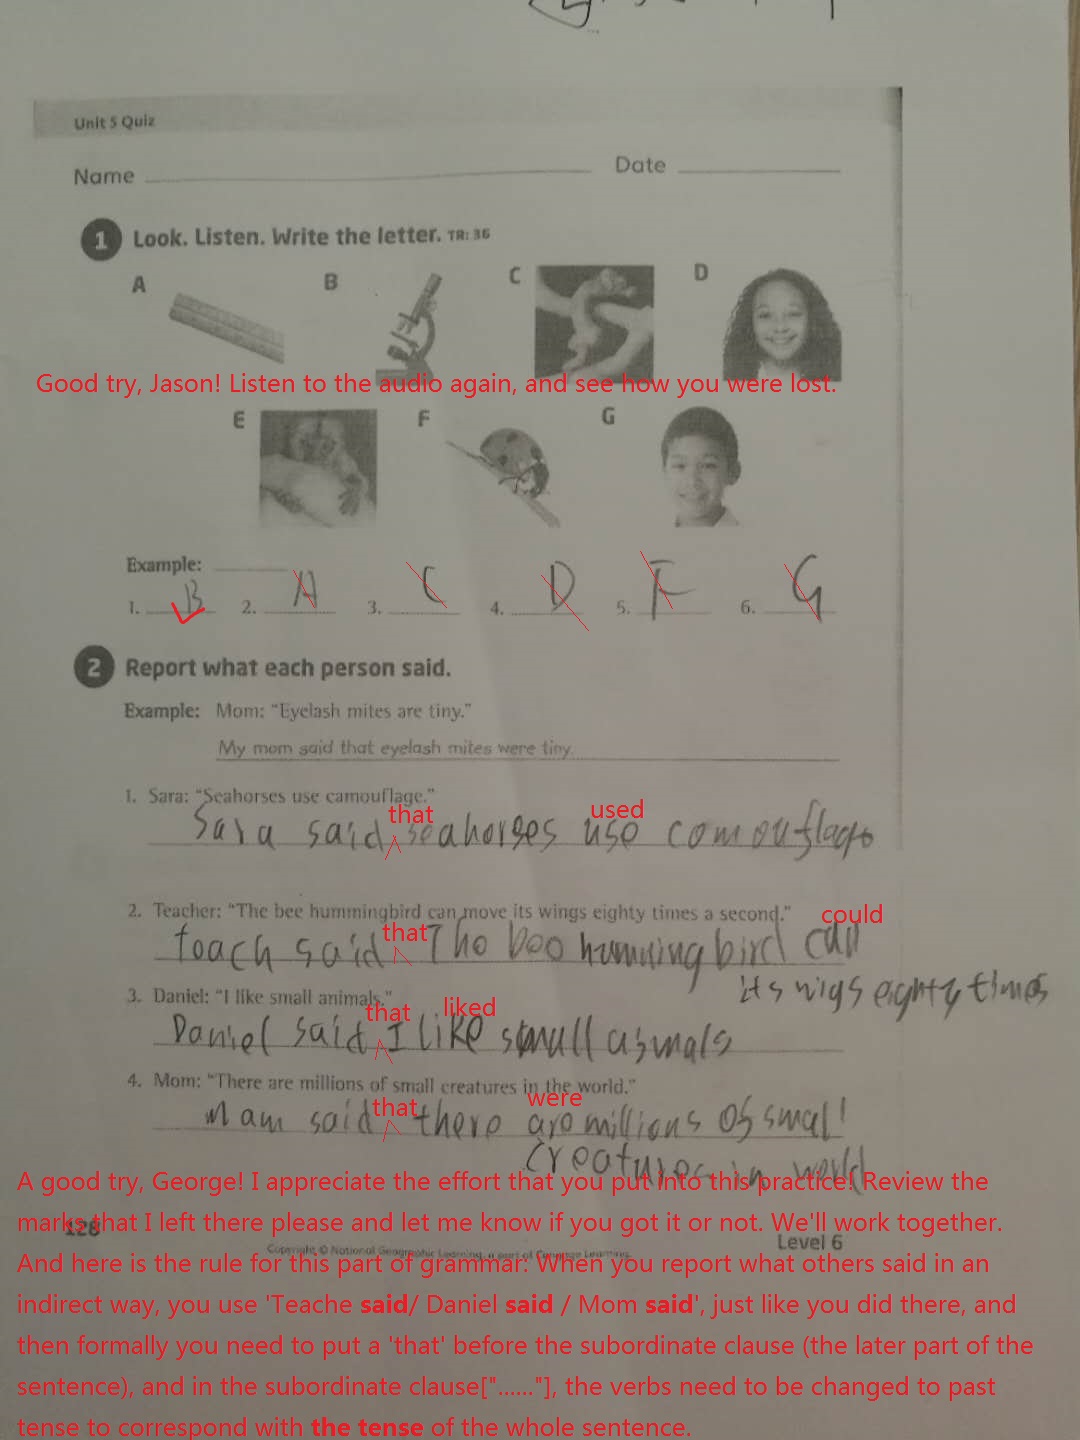 Unit 5 Quiz
Name Date
1 Look. Listen. Write the letter. TR: 36
A B C D
Good try, Jason! Listen to the audio again, and see how you were lost.
E F G
Example:
1. B 2. A 3. C 4. D 5. F 6. G
2 Report what each person said.
Example: Mom: “Eyelash mites are tiny.”
My mom said that eyelash mites were tiny.
1. Sara: “Seahorses use camouflage.”
that used
Sara said seahorses use comouflage
2. Teacher: “The bee hummingbird can move its wings eighty times a second.”
that could
teach said The bee humming bird can
its wigs eighty times
3. Daniel: “I like small animals.”
that liked
Daniel said I like small
4. Mom: “There are millions of small creatures in the world.”
that were
Mam said there are millions of small
creatures in world
A good try, George! I appreciate the effort that you put into this practice! Review the
marks that I left there please and let me know if you got it or not. We'll work together.
128
Level 6
Copyright © National Geographic Learning, a part of Cengage Learning
And here is the rule for this part of grammar: When you report what others said in an
indirect way, you use 'Teache said/ Daniel said / Mom said', just like you did there, and
then formally you need to put a 'that' before the subordinate clause (the later part of the
sentence), and in the subordinate clause["......"], the verbs need to be changed to past
tense to correspond with the tense of the whole sentence.